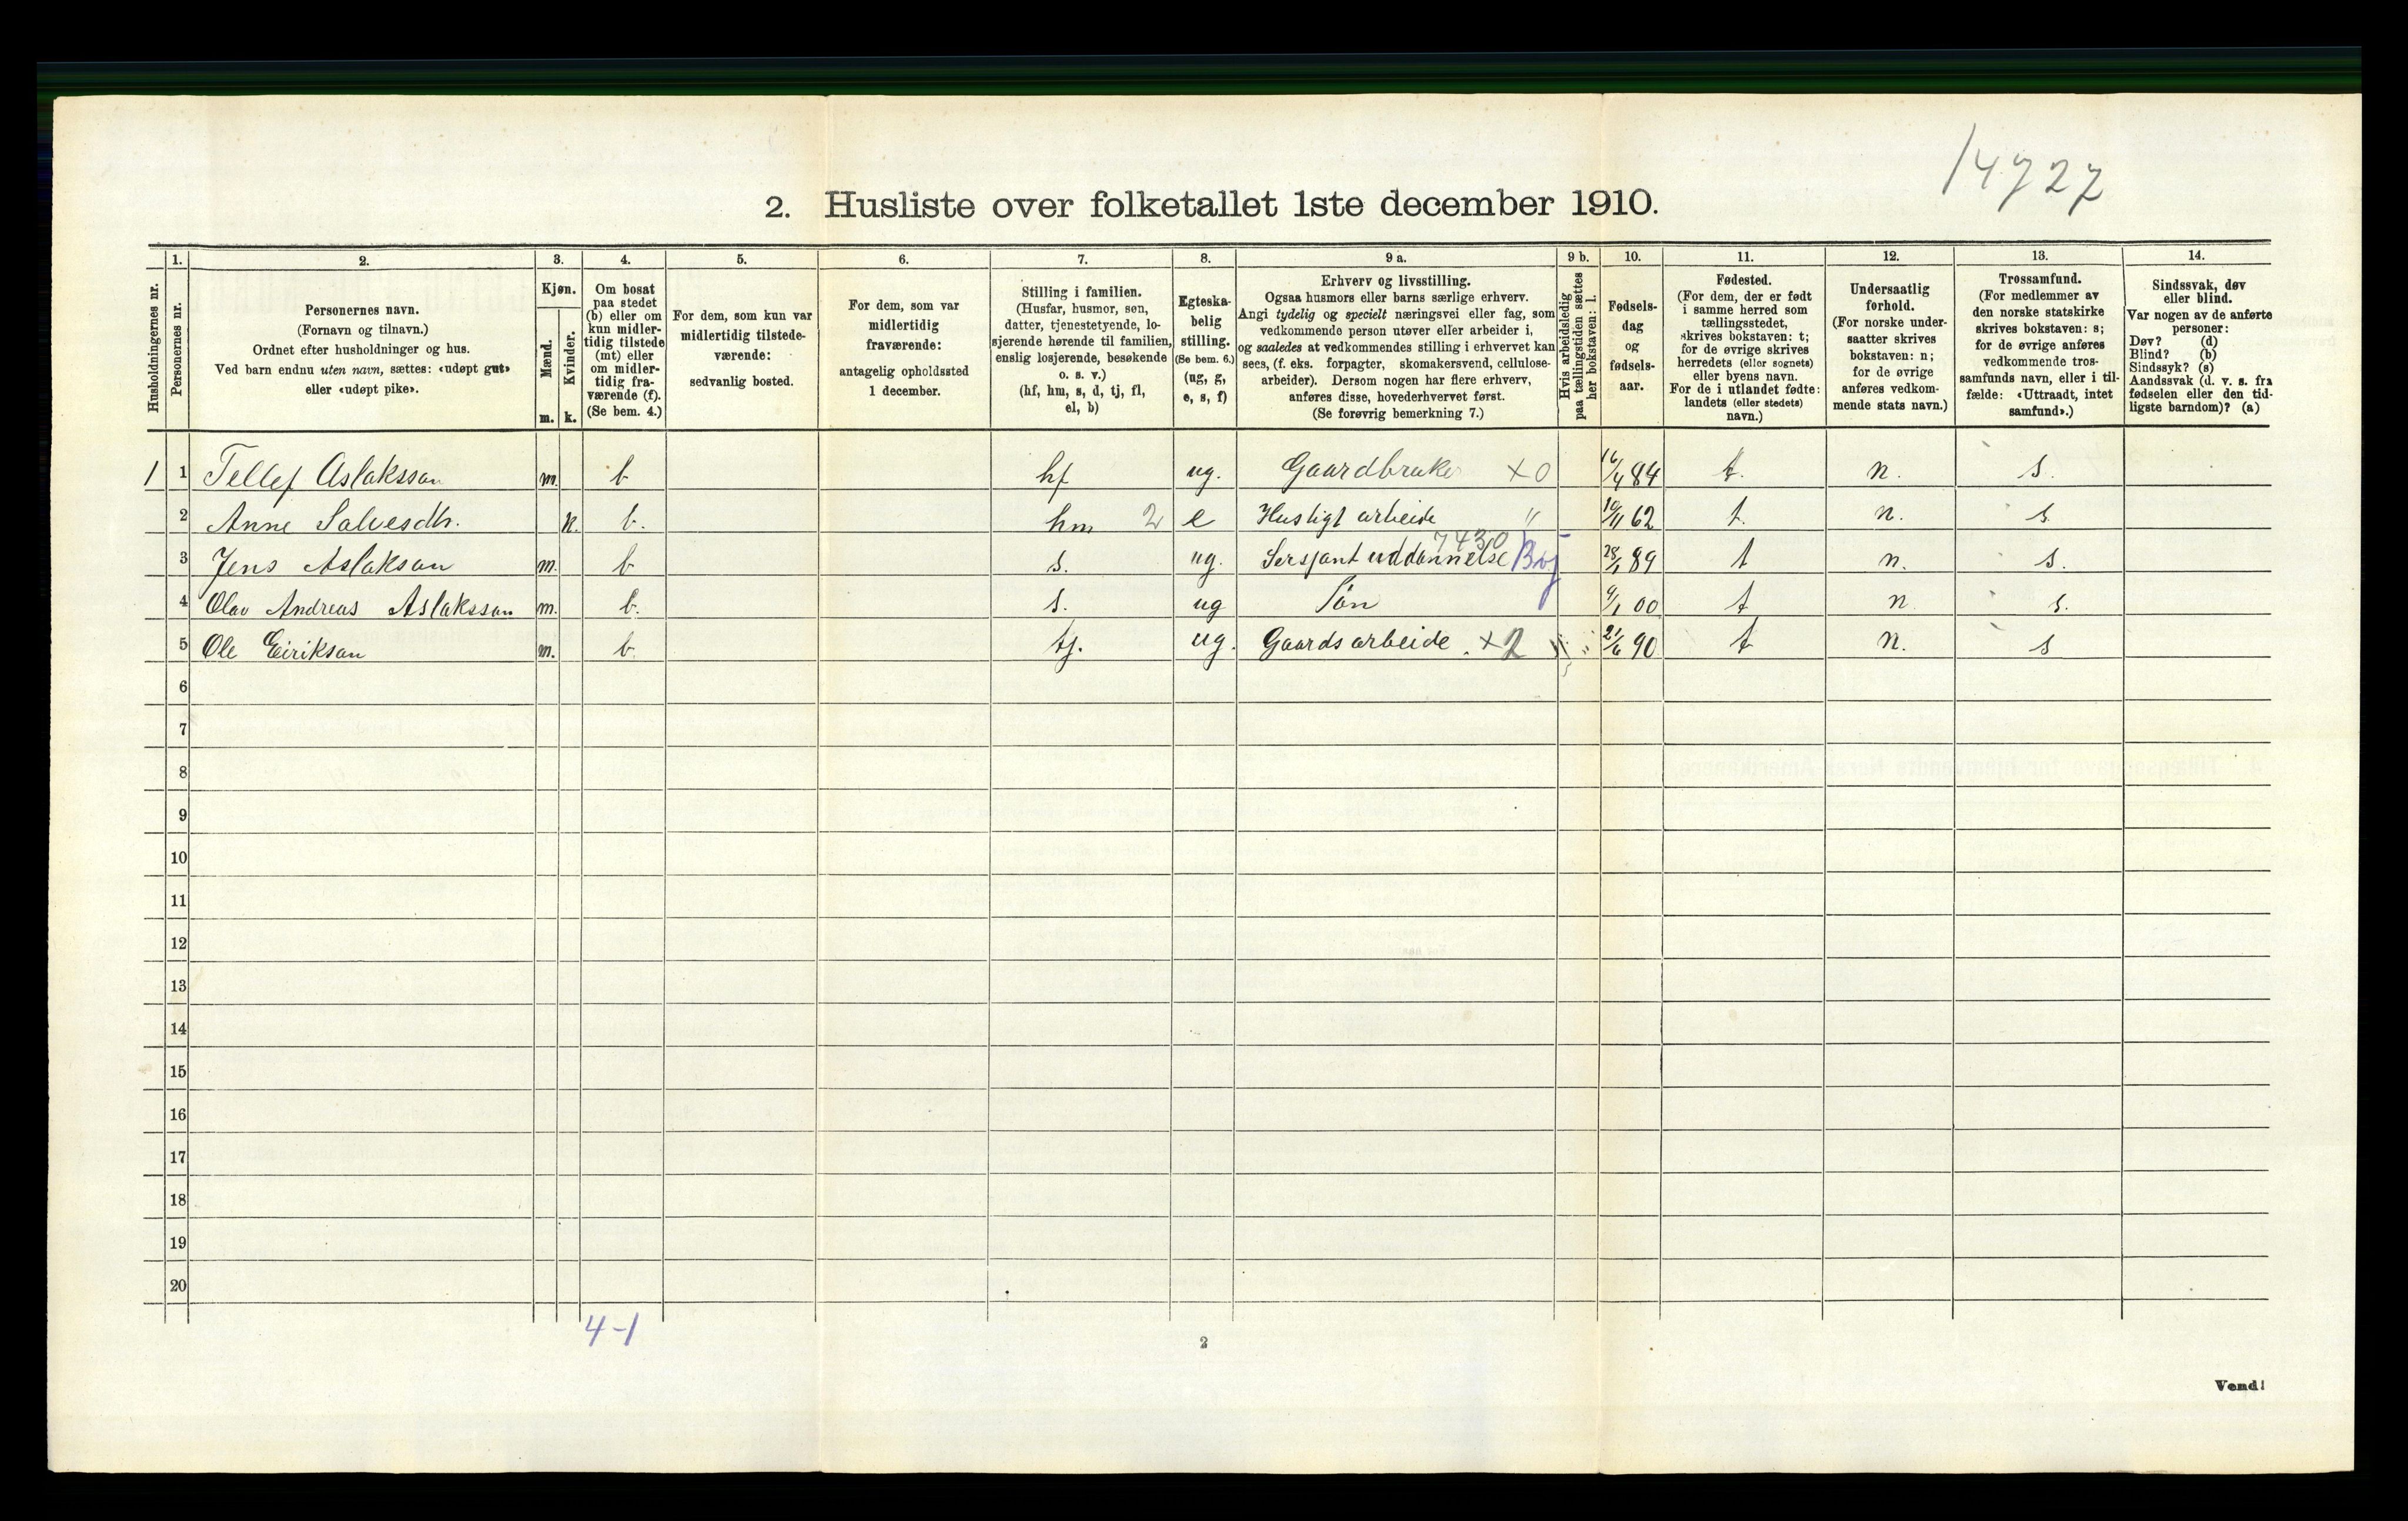 14727
2. Husliste over folketallet 1ste december 1910.
Husholdningernes nr.
1.
Personernes nr.
2.
Personernes navn.
(Fornavn og tilnavn.)
Ordnet efter husholdninger og hus.
Ved barn endnu uten navn, sættes: «udøpt gut»
eller «udøpt pike».
3.
Kjøn.
Mænd.
Kvinder.
m. k.
4.
Om bosat
paa stedet
(b) eller om
kun midler-
tidig tilstede
(mt) eller
om midler-
tidig fra-
værende (f).
(Se bem. 4.)
5.
For dem, som kun var
midlertidig tilstede-
værende:
sedvanlig bosted.
6.
For dem, som var
midlertidig
fraværende:
antagelig opholdssted
1 december.
7.
Stilling i familien.
(Husfar, husmor, søn,
datter, tjenestetyende, lo-
sjerende hørende til familien,
enslig losjerende, besøkende
o. s. v.)
(hf, hm, s, d, tj, fl,
el, b)
8.
Egteska-
belig
stilling.
(Se bem. 6.)
(ug, g,
e, s, f)
9 a.
Erhverv og livsstilling.
Ogsaa husmors eller barns særlige erhverv.
Angi tydelig og specielt næringsvei eller fag, som
vedkommende person utøver eller arbeider i,
og saaledes at vedkommendes stilling i erhvervet kan
sees, (f. eks. forpagter, skomakersvend, cellulose-
arbeider). Dersom nogen har flere erhverv,
anføres disse, hovederhvervet først.
(Se forøvrig bemerkning 7.)
9 b.
Hvis arbeidsledig
paa tællingstiden sættes
her bokstaven: l.
10.
Fødsels-
dag
og
fødsels-
aar.
11.
Fødested.
(For dem, der er født
i samme herred som
tællingsstedet,
skrives bokstaven: t;
for de øvrige skrives
herredets (eller sognets)
eller byens navn.
For de i utlandet fødte:
landets (eller stedets)
navn.)
12.
Undersaatlig
forhold.
(For norske under-
saatter skrives
bokstaven: n;
for de øvrige
anføres vedkom-
mende stats navn.)
13.
Trossamfund.
(For medlemmer av
den norske statskirke
skrives bokstaven: s;
for de øvrige anføres
vedkommende tros-
samfunds navn, eller i til-
fælde: «Uttraadt, intet
samfund».)
14.
Sindssvak, døv
eller blind.
Var nogen av de anførte
personer:
Døv? (d)
Blind? (b)
Sindssyk? (s)
Aandssvak (d. v. s. fra
fødselen eller den tid-
ligste barndom)? (a)
1 1 Tellef Aslakssøn m. b hf ug. Gaardbruker x 0 16/4 84 t. n. s.
2 Anne Salvesdtr. k. b. hm 2 e Husligt arbeide " 10/11 62 t. n. s.
3 Jens Aslaksøn m. b s. ug. Sersjant uddannelse 7430 28/1 89 t n. s.
4 Olav Andreas Aslakssøn m. b. s. ug Søn 9/1 00 t n. s.
5 Ole Eiriksøn m. b. tj. ug. Gaardsarbeide. x 2 21/6 90 t n. s
6
7
8
9
10
11
12
13
14
15
16
17
18
19
20
4-1
2
Vend!